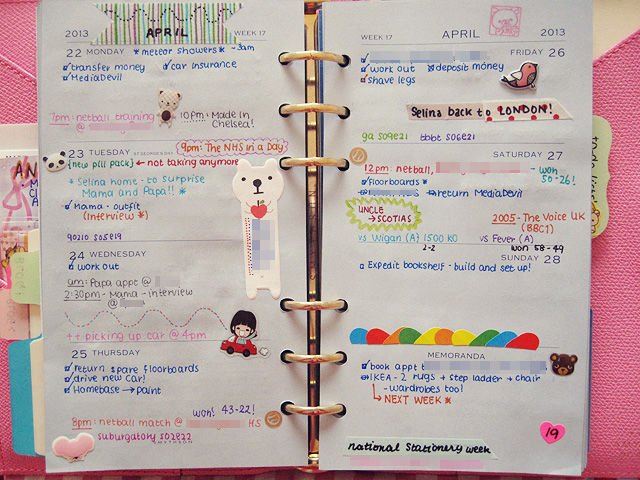 2013 APRIL WEEK 17
22 MONDAY * meteor showers * ~3am
transfer money car insurance
MediaDevil
7pm: netball training 10pm: Made in
@ Chelsea!
23 TUESDAY ST GEORGE'S DAY 9pm: The NHS in a Day
{new pill pack} ← not taking anymore
* Selina home - to surprise
Mama and Papa!! *
Mama - outfit
(interview *)
90210 S05e19
24 WEDNESDAY
work out
am: Papa appt @
2:30pm - Mama - interview
@
++ picking up car @ 4pm
25 THURSDAY
return spare floorboards
drive new car!
Homebase → paint
won! 43-22!
8pm: netball match @ HS
suburgatory S02e22
WEEK 17 APRIL 2013
FRIDAY 26
work out deposit money
shave legs
Selina back to LONDON!
ga S09e21 tbbt S06e21
SATURDAY 27
12pm: netball, - won
50-26!
floorboards *
return MediaDevil
UNCLE
→ SCOTIAS
2005 - The Voice UK
(BBC1)
vs Wigan (A) 1500 KO vs Fever (A)
2-2 won 58-49
SUNDAY 28
Expedit bookshelf - build and set up!
MEMORANDA
book appt t
IKEA - 2 rugs + step ladder + chair
- wardrobes too!
→ NEXT WEEK *
19
national Stationery week